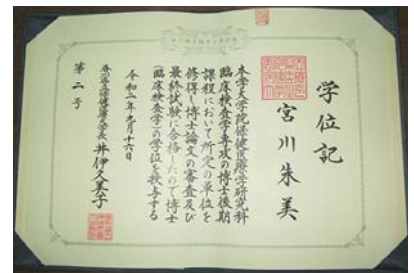 学位記
宮川朱美
本学大学院保健医療学研究科
臨床検査学専攻の博士後期
課程において所定の単位を
修得し博士論文の審査及び
最終試験に合格したので博士
(臨床検査学)の学位を授与する
令和二年九月十六日
香川県立保健医療大学長 井伊久美子
第二号